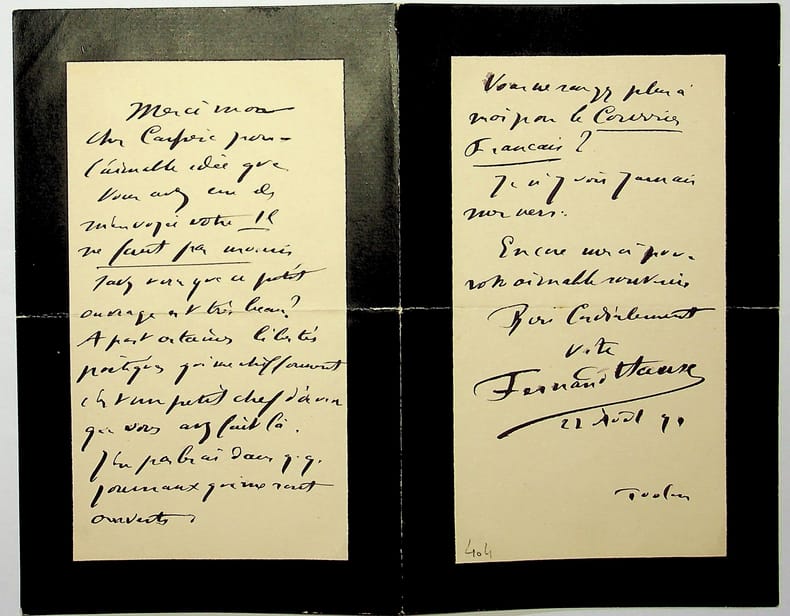 Merci mon
cher Carpéic pour
l'aimable idée que
vous avez eue de
m'envoyer votre Il
ne faut pas mourir
Savez vous que ce petit
ouvrage est très beau?
A part certaines libertés
poétiques qui me chiffonnent
c'est un petit chef d'œuvre
que vous avez fait là.
J'en parlerai dans q.q.
journaux qui me sont
ouverts
Vous ne songez plus à
moi pour le Courrier
Français ?
Je n'y vois jamais
mes vers.
Encore merci pour
votre aimable souvenir
Bien Cordialement
Votre
Fernand
22 Août 90
Toulon
404